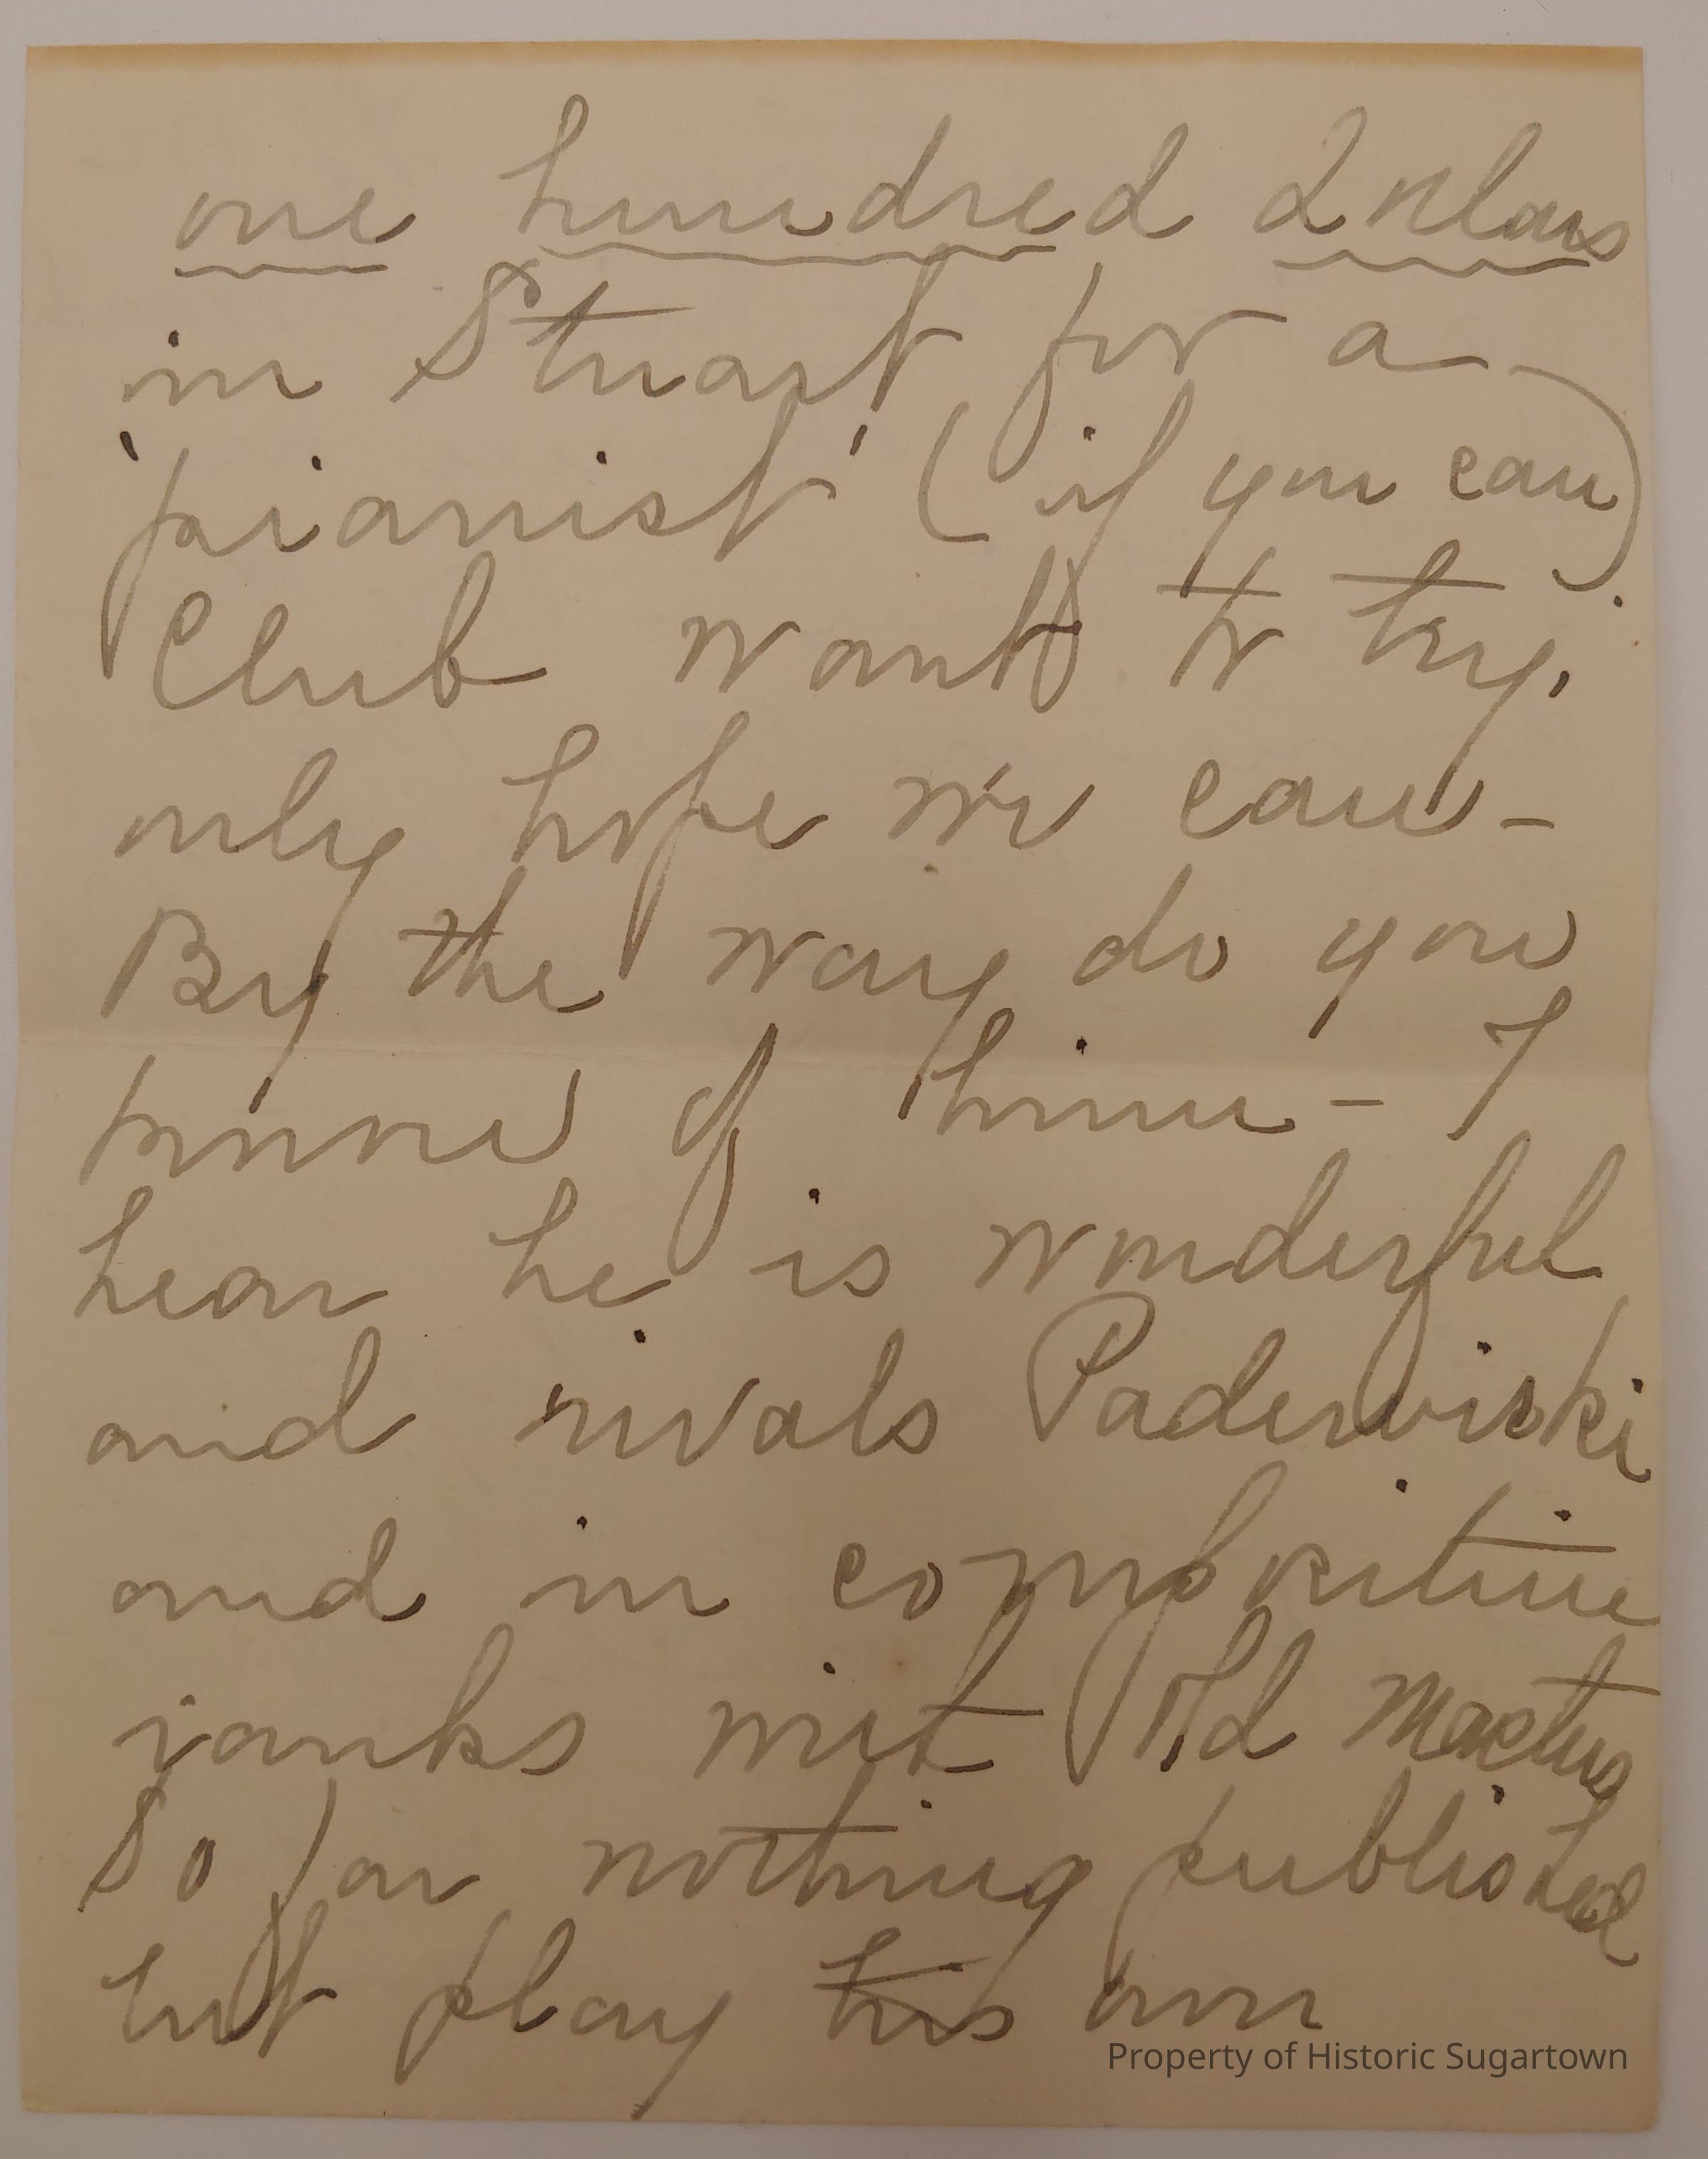 one hundred Dollars
in Stuart for a
'pianist' (if you can)
Club wants to try.
only hope we can -
By the way do you
know of him - I
hear he is wonderful
and rivals Paderwiski
and in composition
ranks wit Old Masters
So far nothing published
but play his own
Property of Historic Sugartown